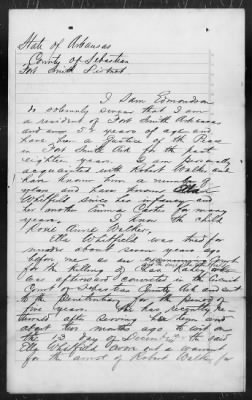 State of Arkansas
County of Sebastian
Fort Smith District
I Sam Edmondson
do solemnly swear that I am
a resident of Fort Smith Arkansas
and am 53 years of age and
have been a Justice of the Peace
in Fort Smith Ark for the last
eighteen years. I am personally
acquainted with Robert Walker and
have known him a number of
years and have known Ella
Whitfield since her infancy and
her mother Emma Carter for many
years. I know the child
Roxie Anne Walker.
Ella Whitfield was tried for
murder about seven years ago
before me as an examining Court
for the killing of
was afterward convicted in the Circuit
Court of Sebastian County Ark and sent
to the penitentiary for the period of
five years. She has recently re-
turned after serving her term and
about two months ago, to wit on
the 13 day of December the said
Ella Whitfield swore out a warrant
for the arrest of Robert Walker for